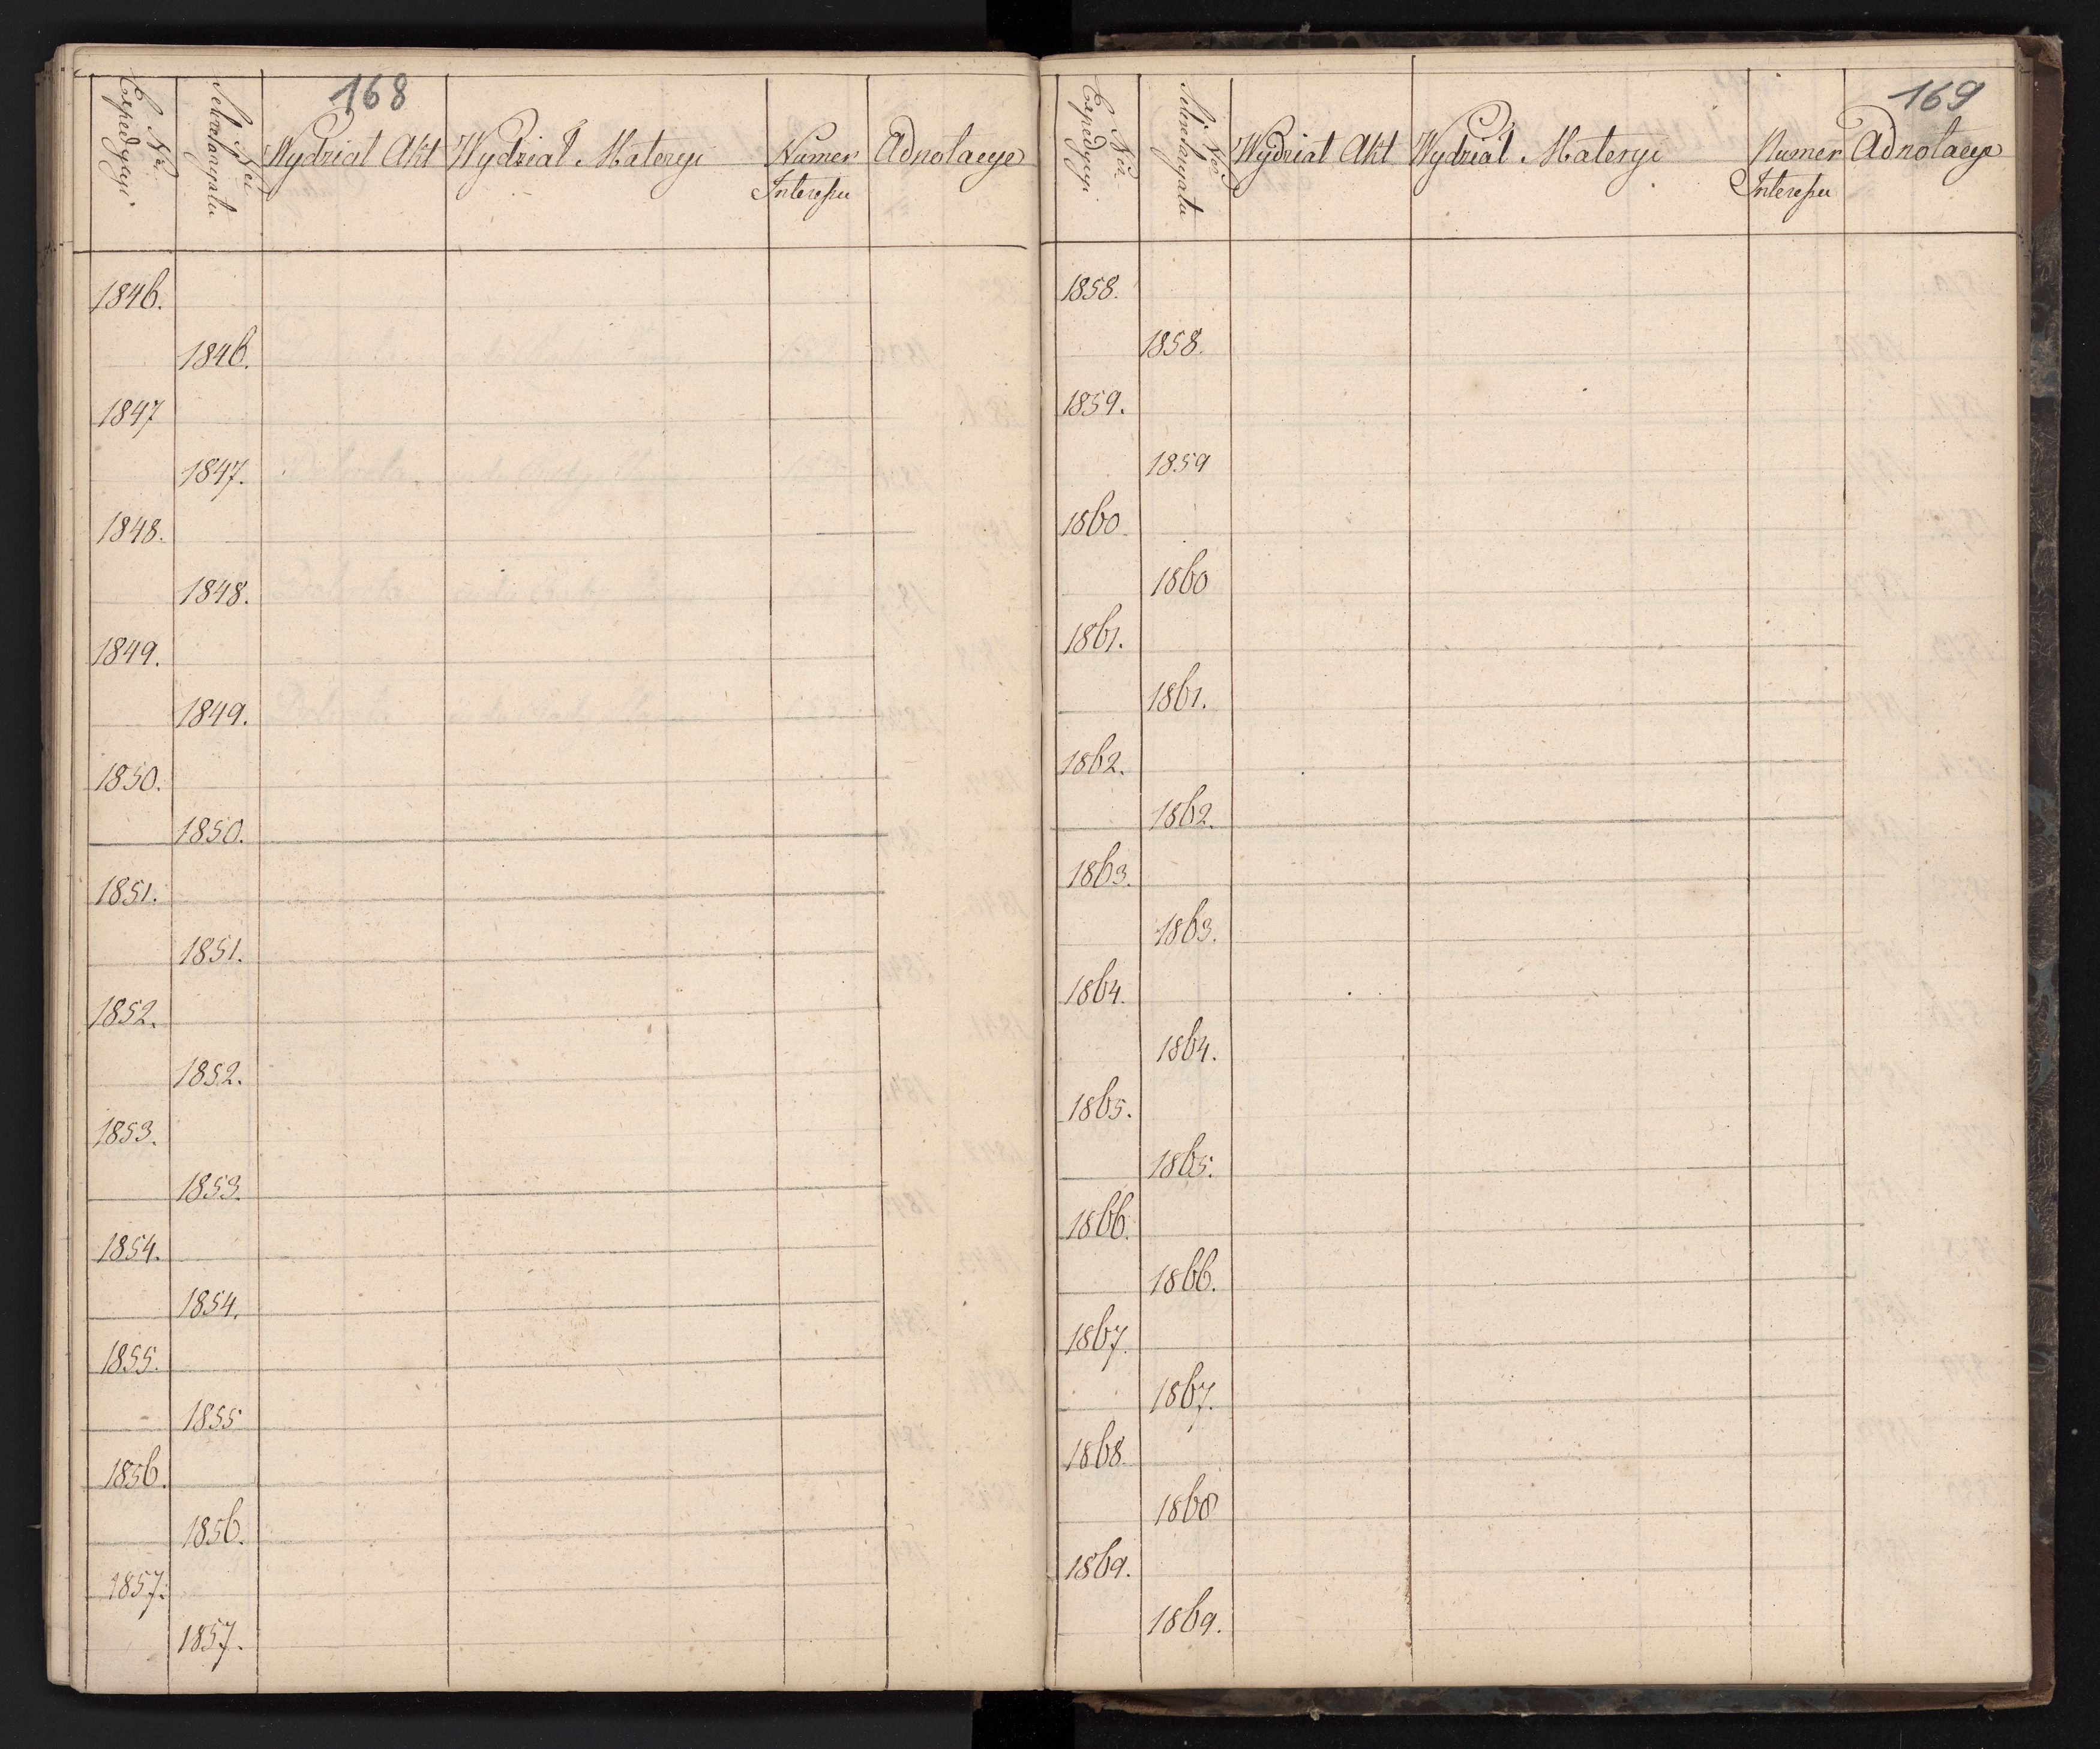 168
Nro Expedycyi
Nro Sekretaryatu
Wydział Akt
Wydział Materyi
Numer Interessu
Adnotacye
1846.
1846.
1847
1847.
1848.
1848.
1849.
1849.
1850.
1850.
1851.
1851.
1852.
1852.
1853.
1853.
1854.
1854.
1855.
1855
1856.
1856.
1857.
1857.
169
Expedycyi
Sekretaryatu
Wydział Akt
Wydział Materyi
Numer Interessu
Adnotacye
1858.
1858.
1859.
1859
1860
1860
1861.
1861.
1862.
1862.
1863.
1863.
1864.
1864.
1865.
1865.
1866.
1866.
1867.
1867.
1868
1868
1869.
1869.